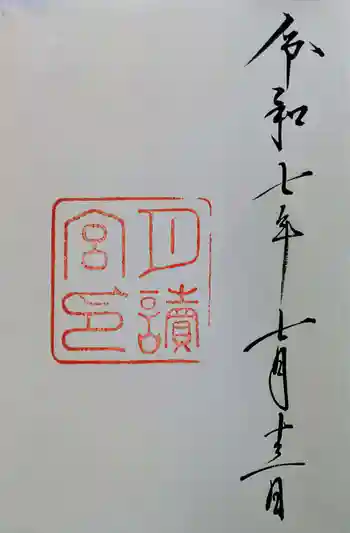 令和七年七月十三日
月讀
宮印